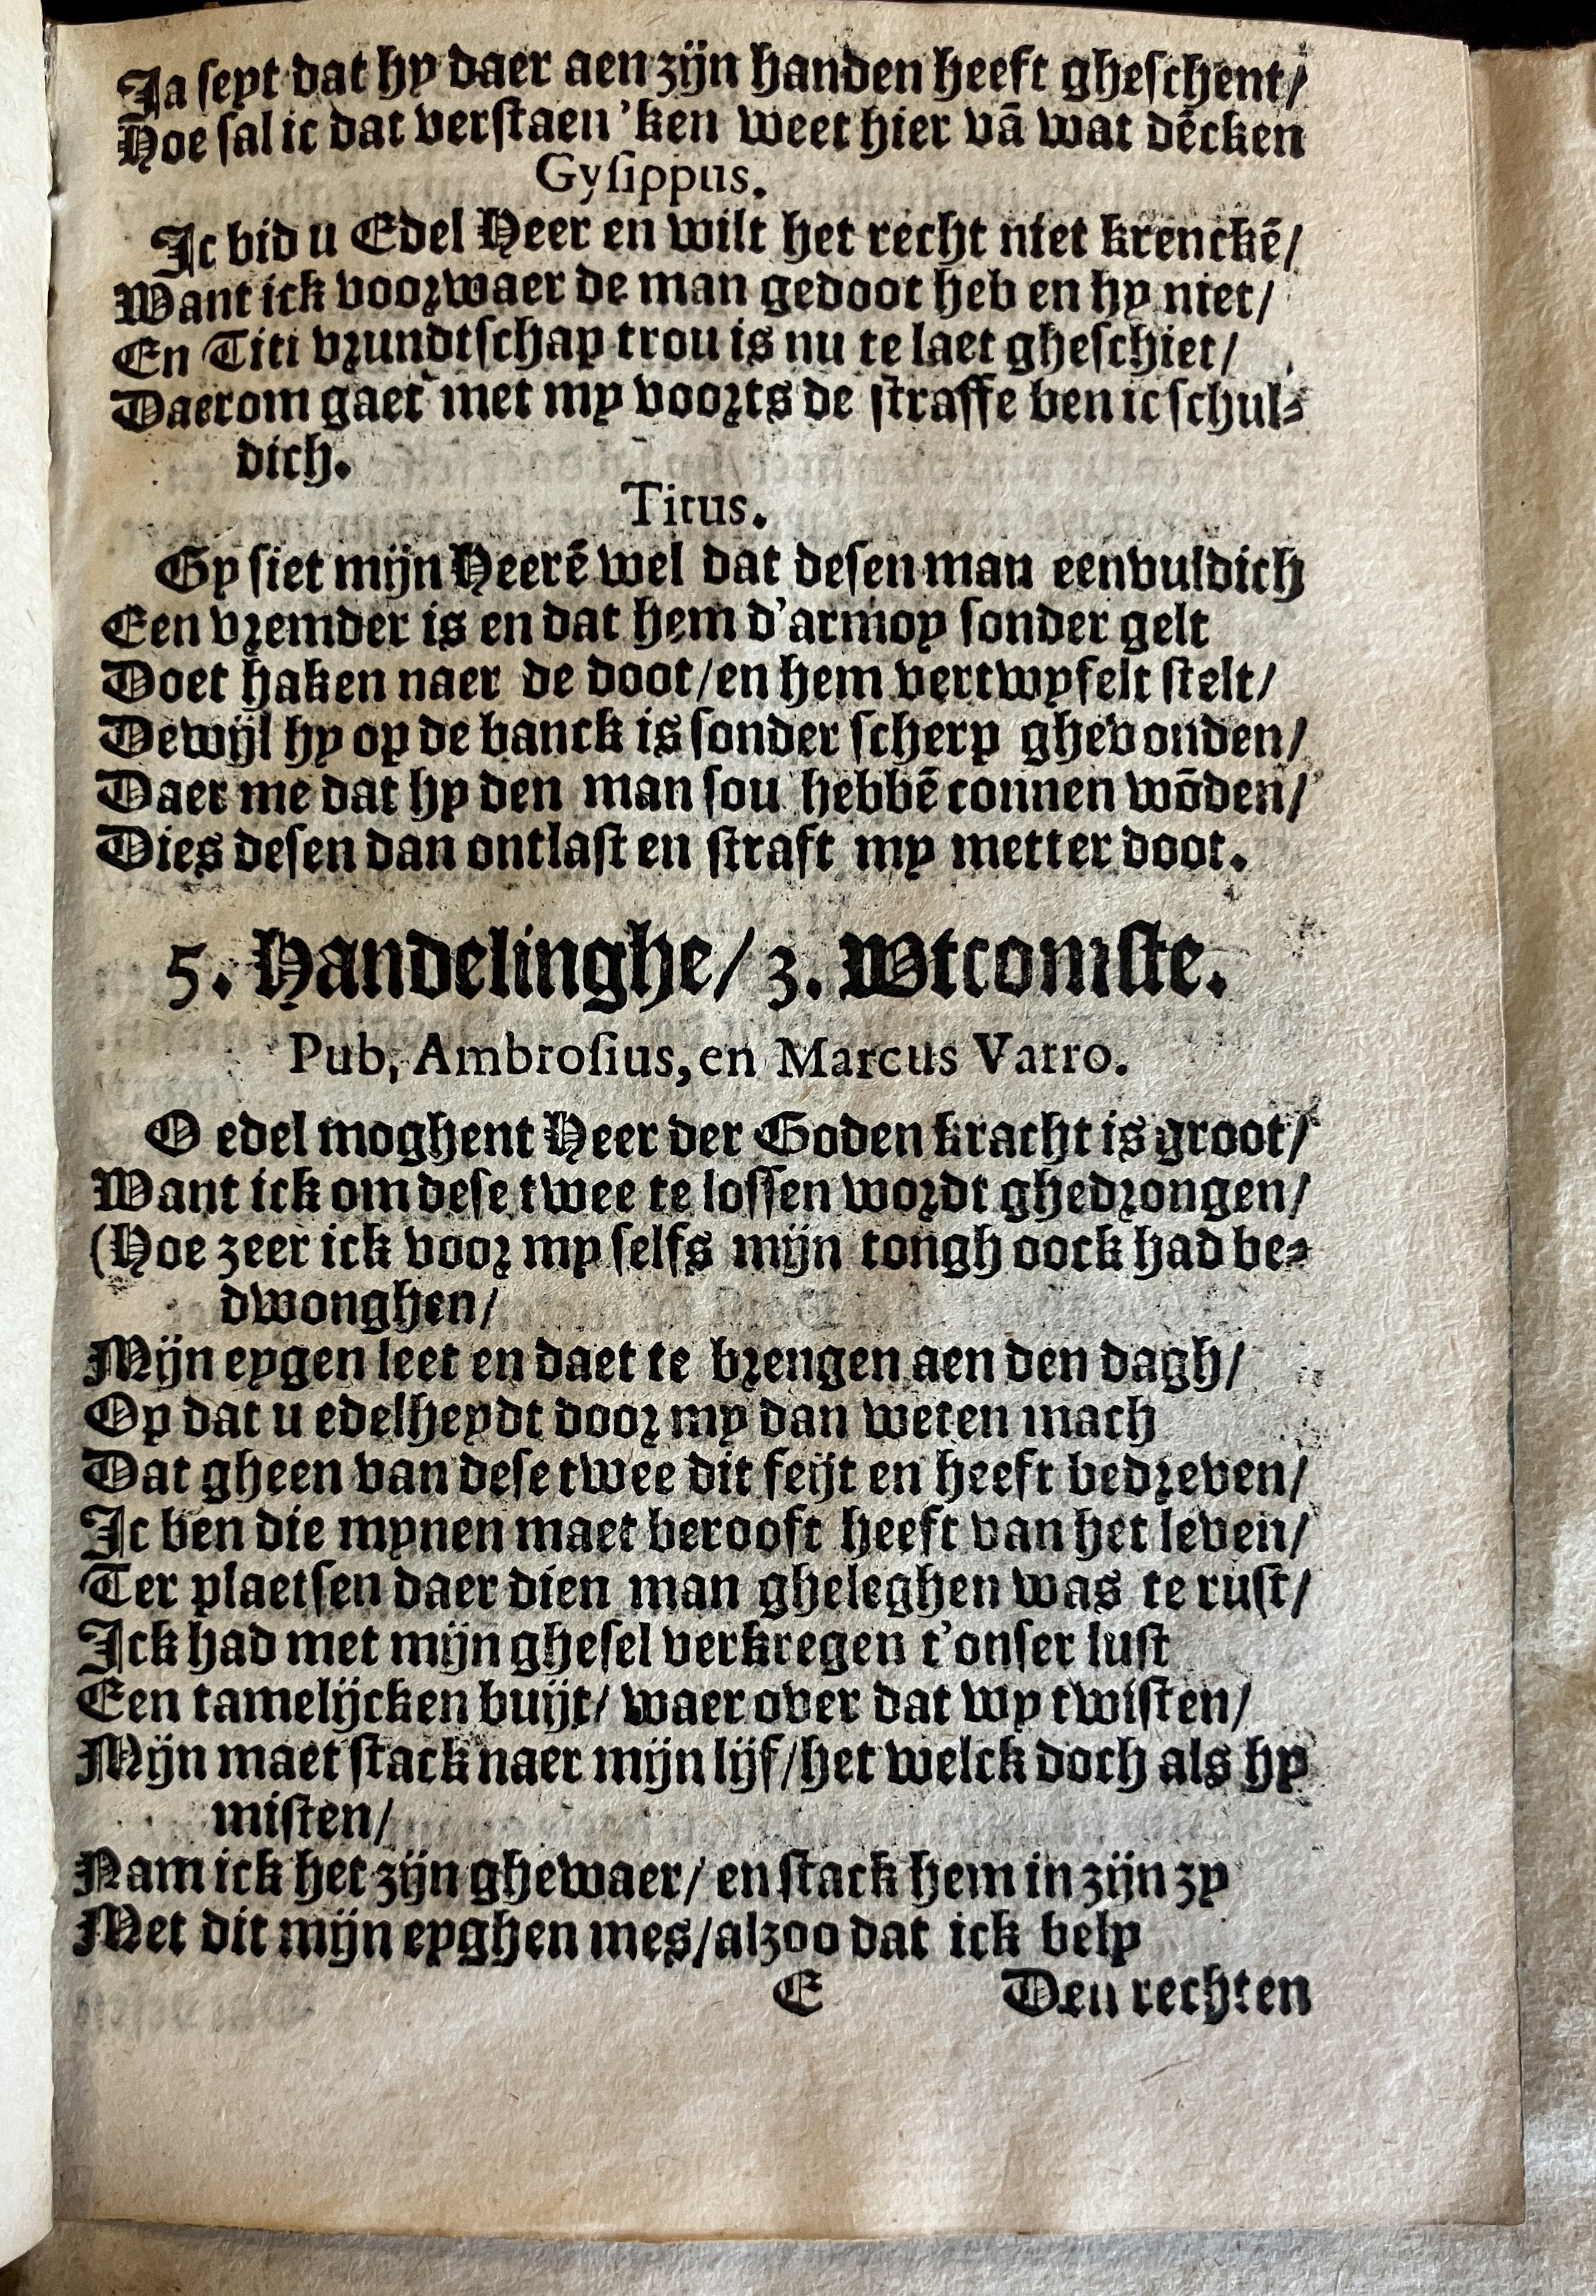 Ja seyt dat hy daer aen zijn handen heeft gheschent/
Hoe sal ic dat verstaen 'ken weet hier vā wat dēcken
Gysippus.
Ic bid u Edel Heer en wilt het recht niet krenckē/
Want ick voorwaer de man gedoot heb en hy niet/
En Titi vrundtschap trou is nu te laet gheschiet/
Daerom gaet met my voorts de straffe ben ic schul-
dich.
Titus.
Gy siet mijn Heerē wel dat desen man eenvuldich
Een vremder is en dat hem d'armoy sonder gelt
Doet haken naer de doot/en hem vertwyfelt stelt/
Dewijl hy op de banck is sonder scherp ghevonden/
Daer me dat hy den man sou hebbē connen wōden/
Dies desen dan ontlast en straft my metter doot.
5. Handelinghe/ 3. Wtcomste.
Pub, Ambrosius, en Marcus Varro.
O edel moghent Heer der Goden kracht is groot/
Want ick om dese twee te lossen wordt ghedrongen/
(Hoe zeer ick voor my selfs mijn tongh oock had be-
dwonghen/
Mijn eygen leet en daet te brengen aen den dagh/
Op dat u edelheydt door my dan weten mach
Dat gheen van dese twee dit feijt en heeft bedreven/
Ic ben die mynen maet berooft heeft van het leven/
Ter plaetsen daer dien man gheleghen was te rust/
Ick had met mijn ghesel verkregen t'onser lust
Een tamelijcken buijt/ waer over dat wy twisten/
Mijn maet stack naer mijn lijf/het welck doch als hy
misten/
Nam ick het zijn ghewaer/ en stack hem in zijn zy
Met dit mijn eyghen mes/alzoo dat ick bely
E Den rechten